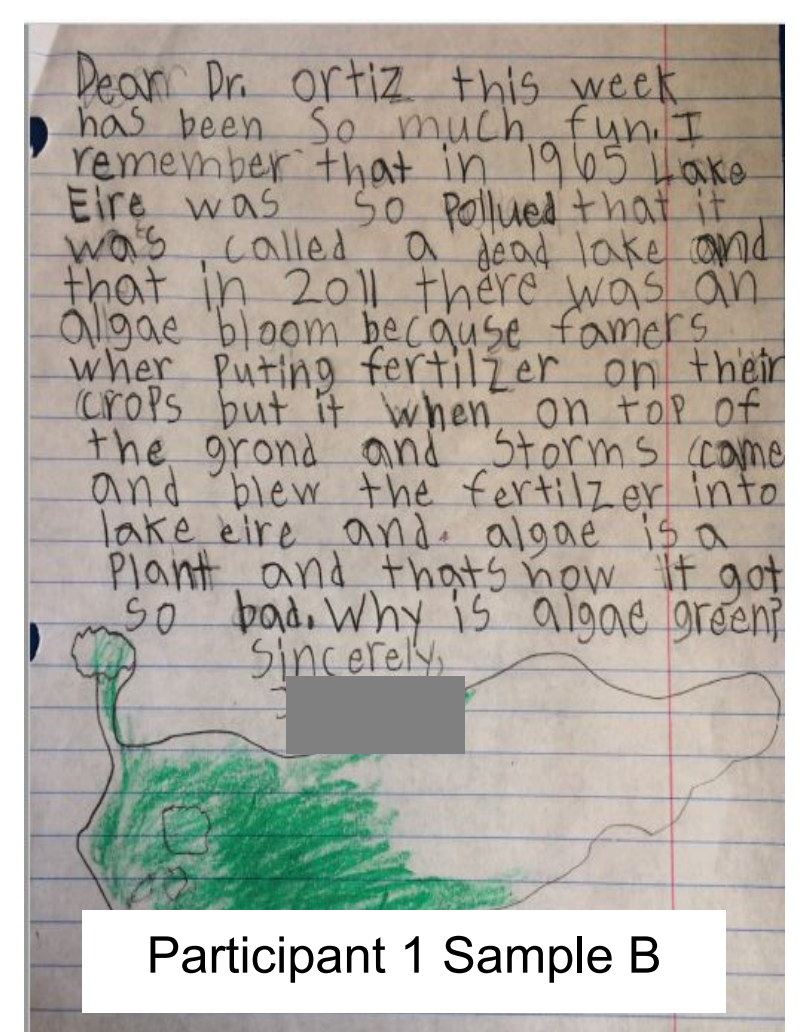 Dear Dr. ortiz this week
has been so much fun. I
remember that in 1965 Lake
Eire was so Pollued that it
was called a dead lake and
that in 2011 there was an
algae bloom because famers
wher Puting fertilzer on their
crops but it when on top of
the grond and Storms came
and blew the fertilzer into
lake eire and algae is a
Plant and thats how it got
so bad. Why is algae green?
Sincerely,
Participant 1 Sample B